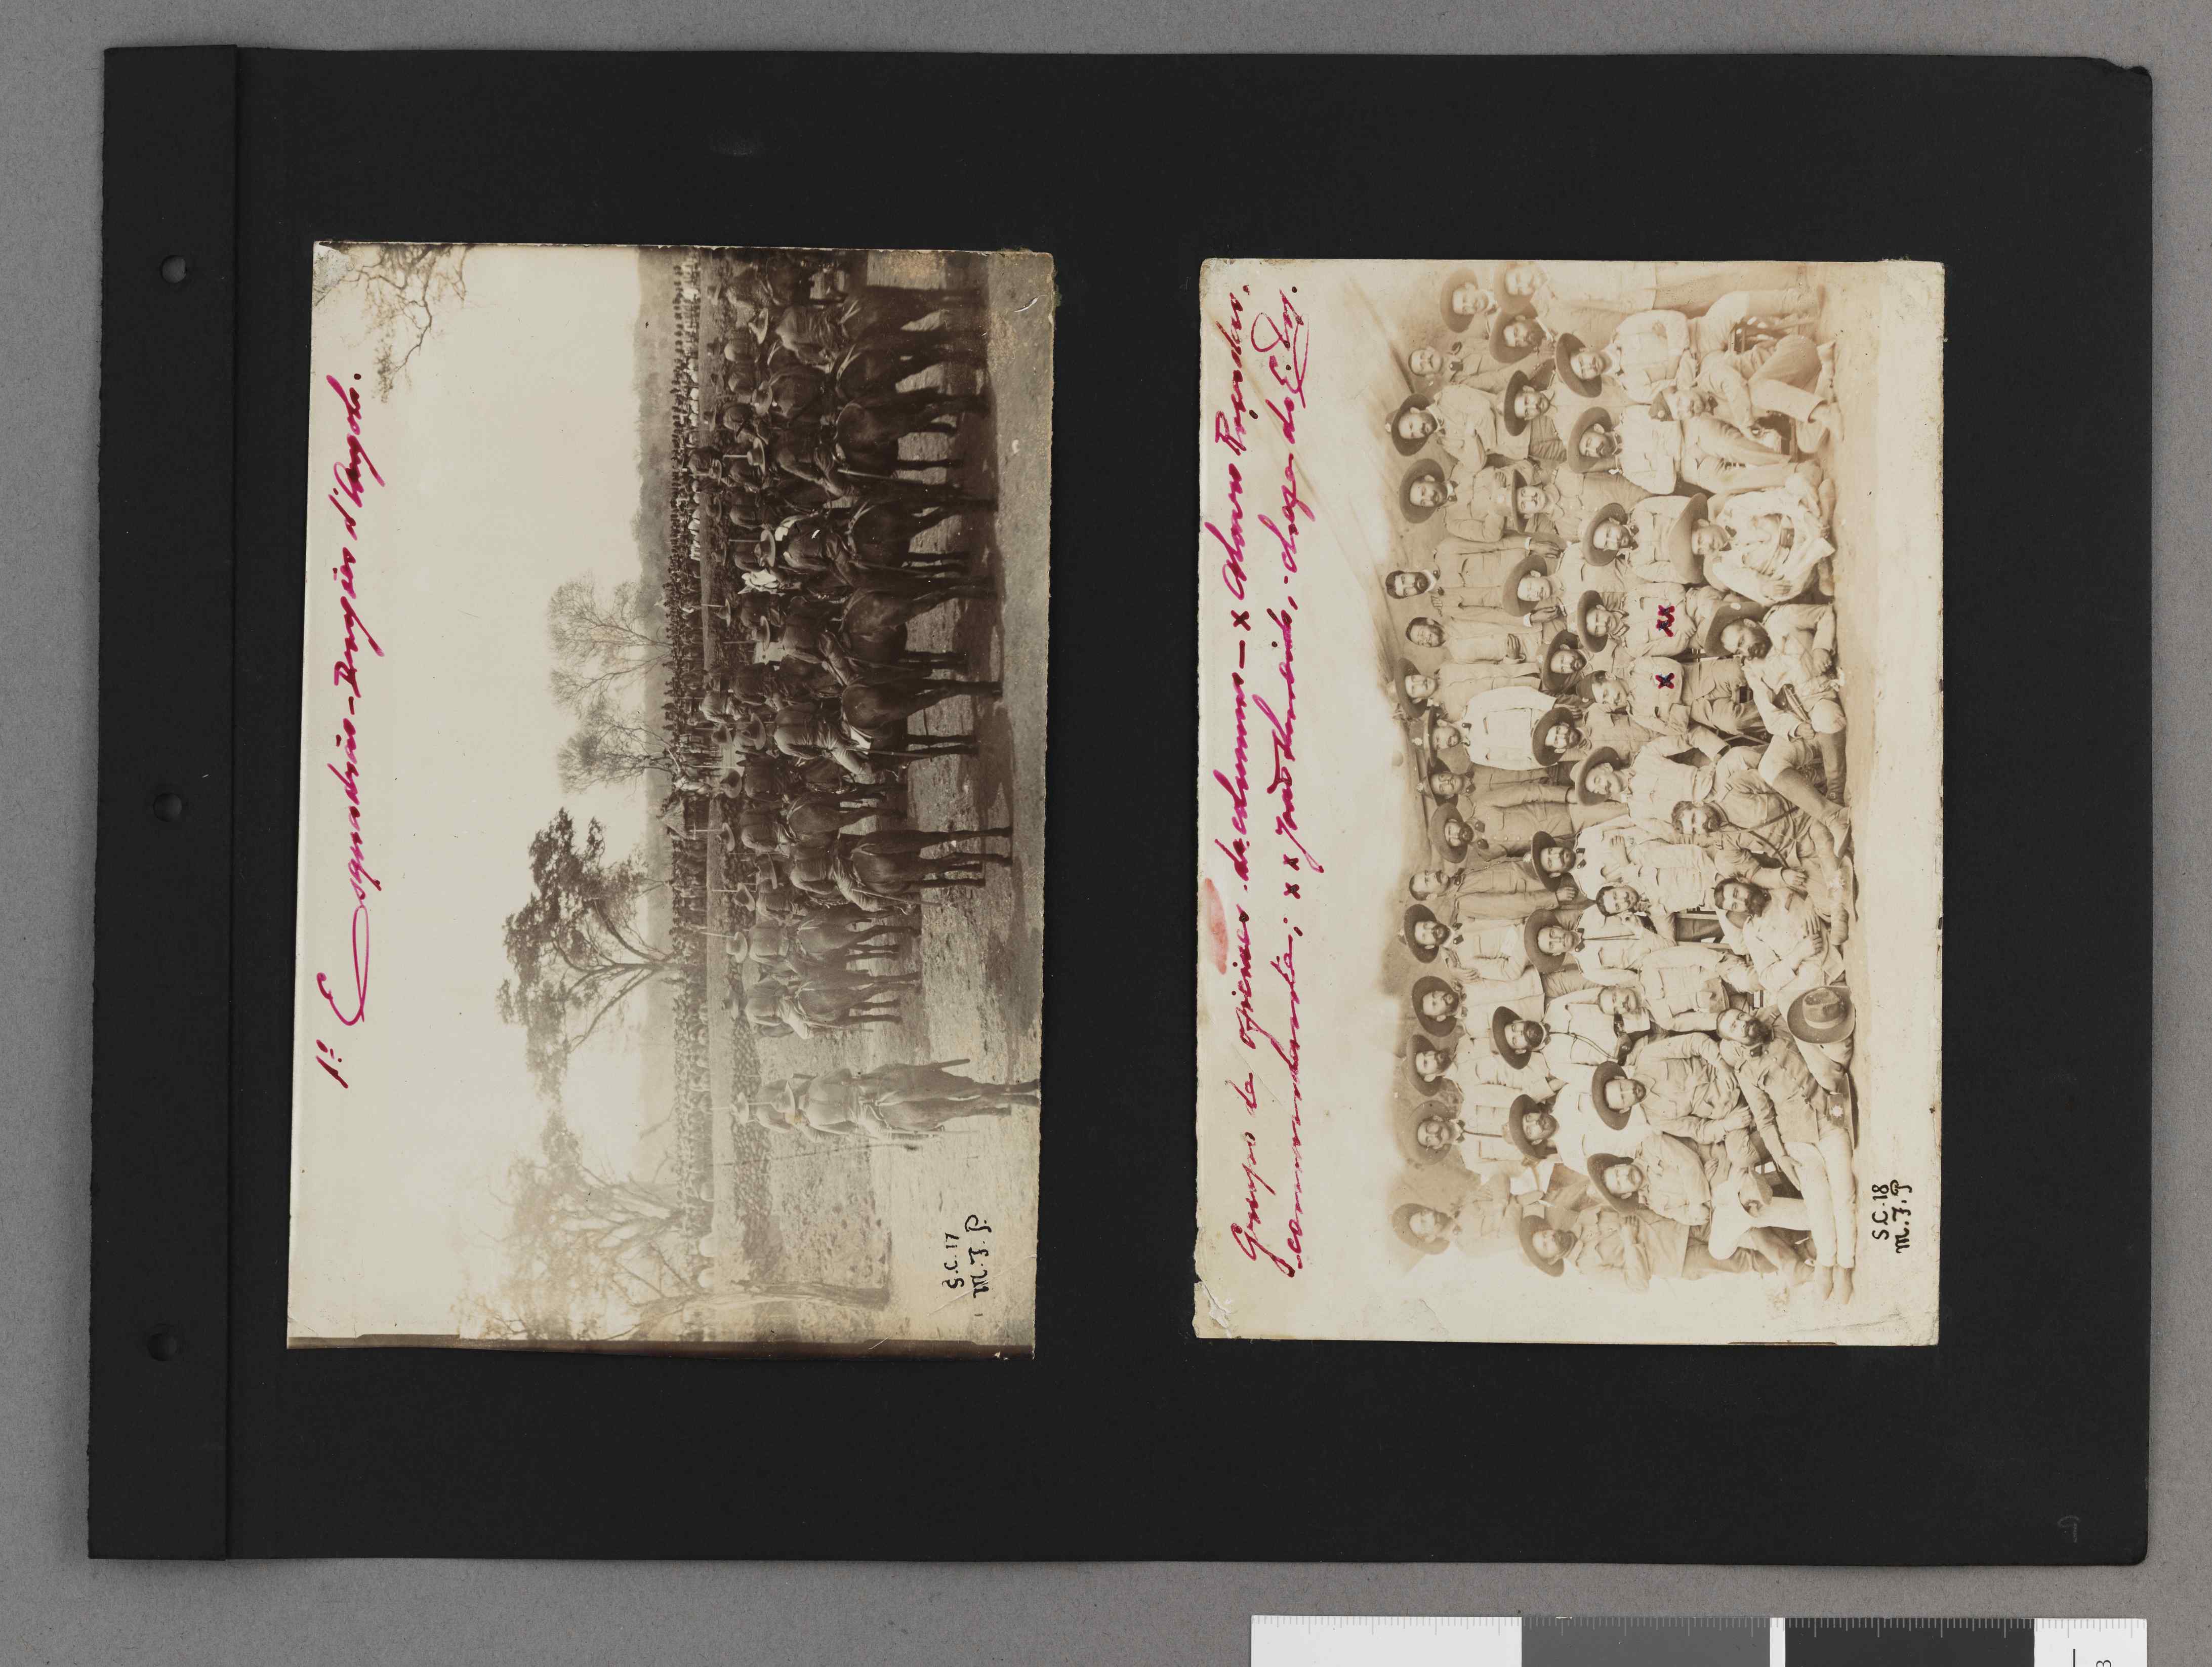 1º Esquadrão - Dragões d'Angola.
S.C. 17
M. J. P.
Grupo de oficiais da columna - x Alvaro Roçadas.
commandante; x x João de Almeida, chefe do E. M.
x
xx
S.C. 18
M. J. P